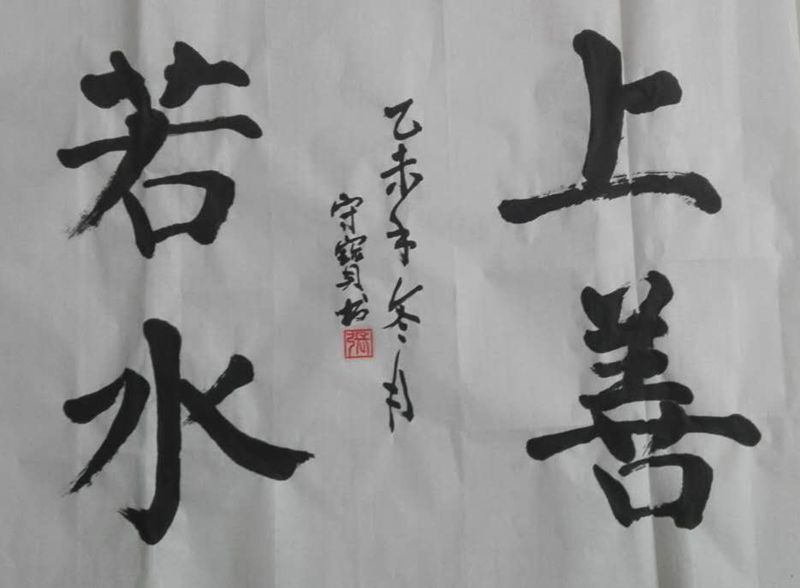 上善
若水
乙未年冬月
守寶书